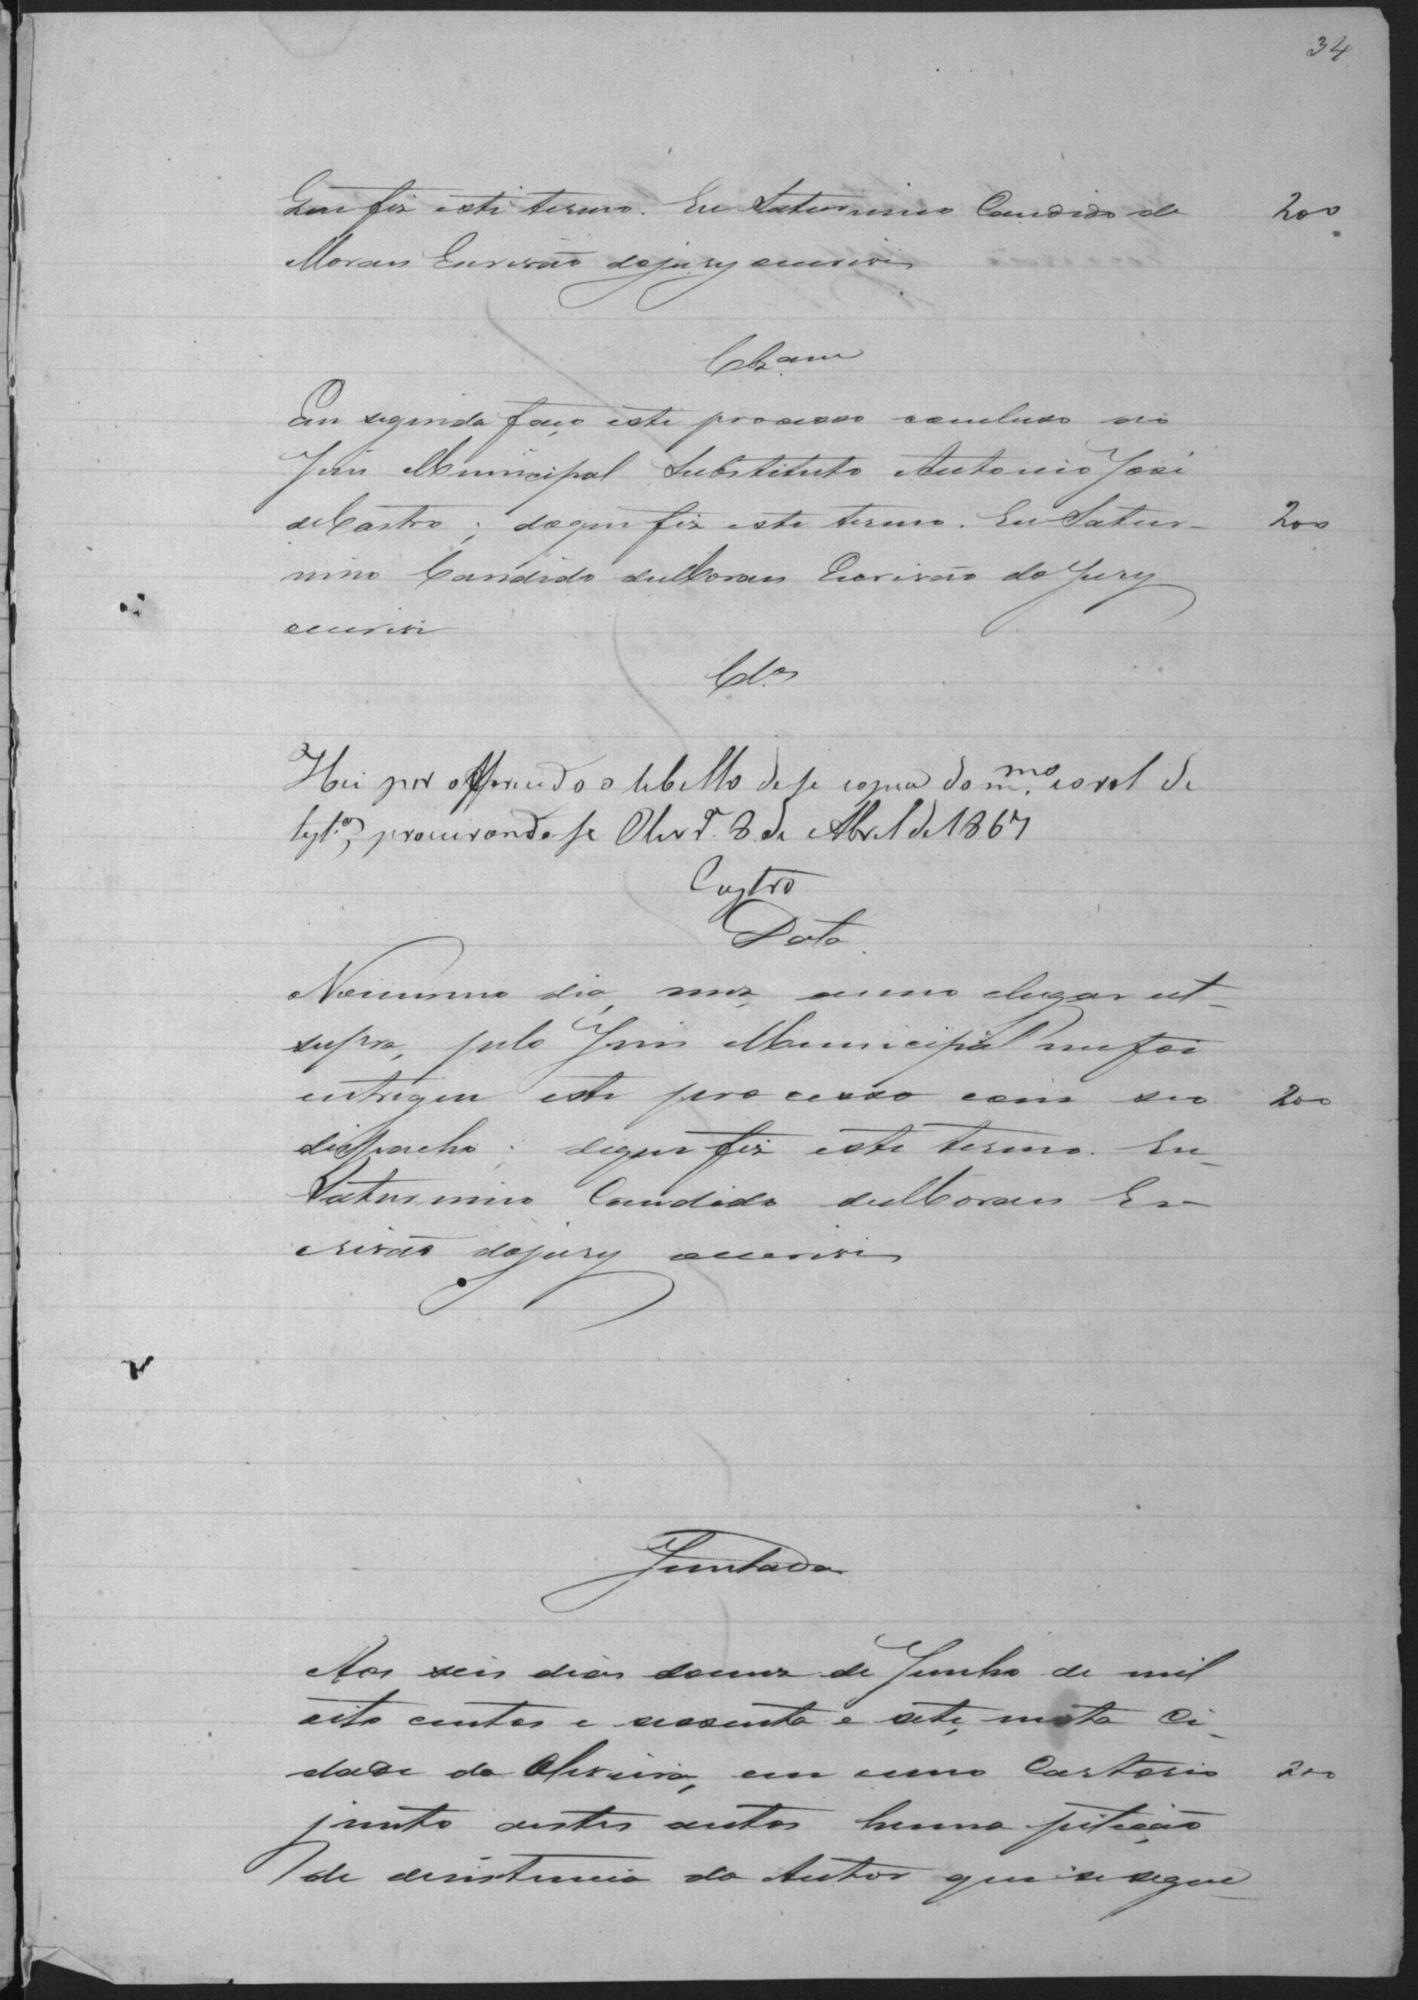 34
que fiz este termo. Eu Saturnino Candido de 200
Moraes Escrivão do jury escrevi
Clz.am
Em seguida faço este processo concluso ao
Juis Municipal Substituto Antonio José
de Castro; do que fiz este termo. Eu Satur- 200
nino Candido de Moraes Escrivão do Jury
escrevi
Cl.os
Hei por offerecido o libello de se copea do m.mo e o rol de
tgt.as, procurando se Olivr.a 8 de Abril de 1867
Castro
Data
No mesmo dia, mez, anno e lugar ut-
supra, pelo Juis Municipal me foi
entregue este processo com seo 200
dispacho; do que fiz este termo. Eu
Saturnino Candido de Moraes Es-
crivão do jury escrevi
Juntada
Aos seis dias do mez de Junho de mil
oito centos e sessenta e sete, nesta Ci-
dade da Oliveira, em meo Cartorio 200
junto destes autos huma petição
de desistencia do Autor que se segue